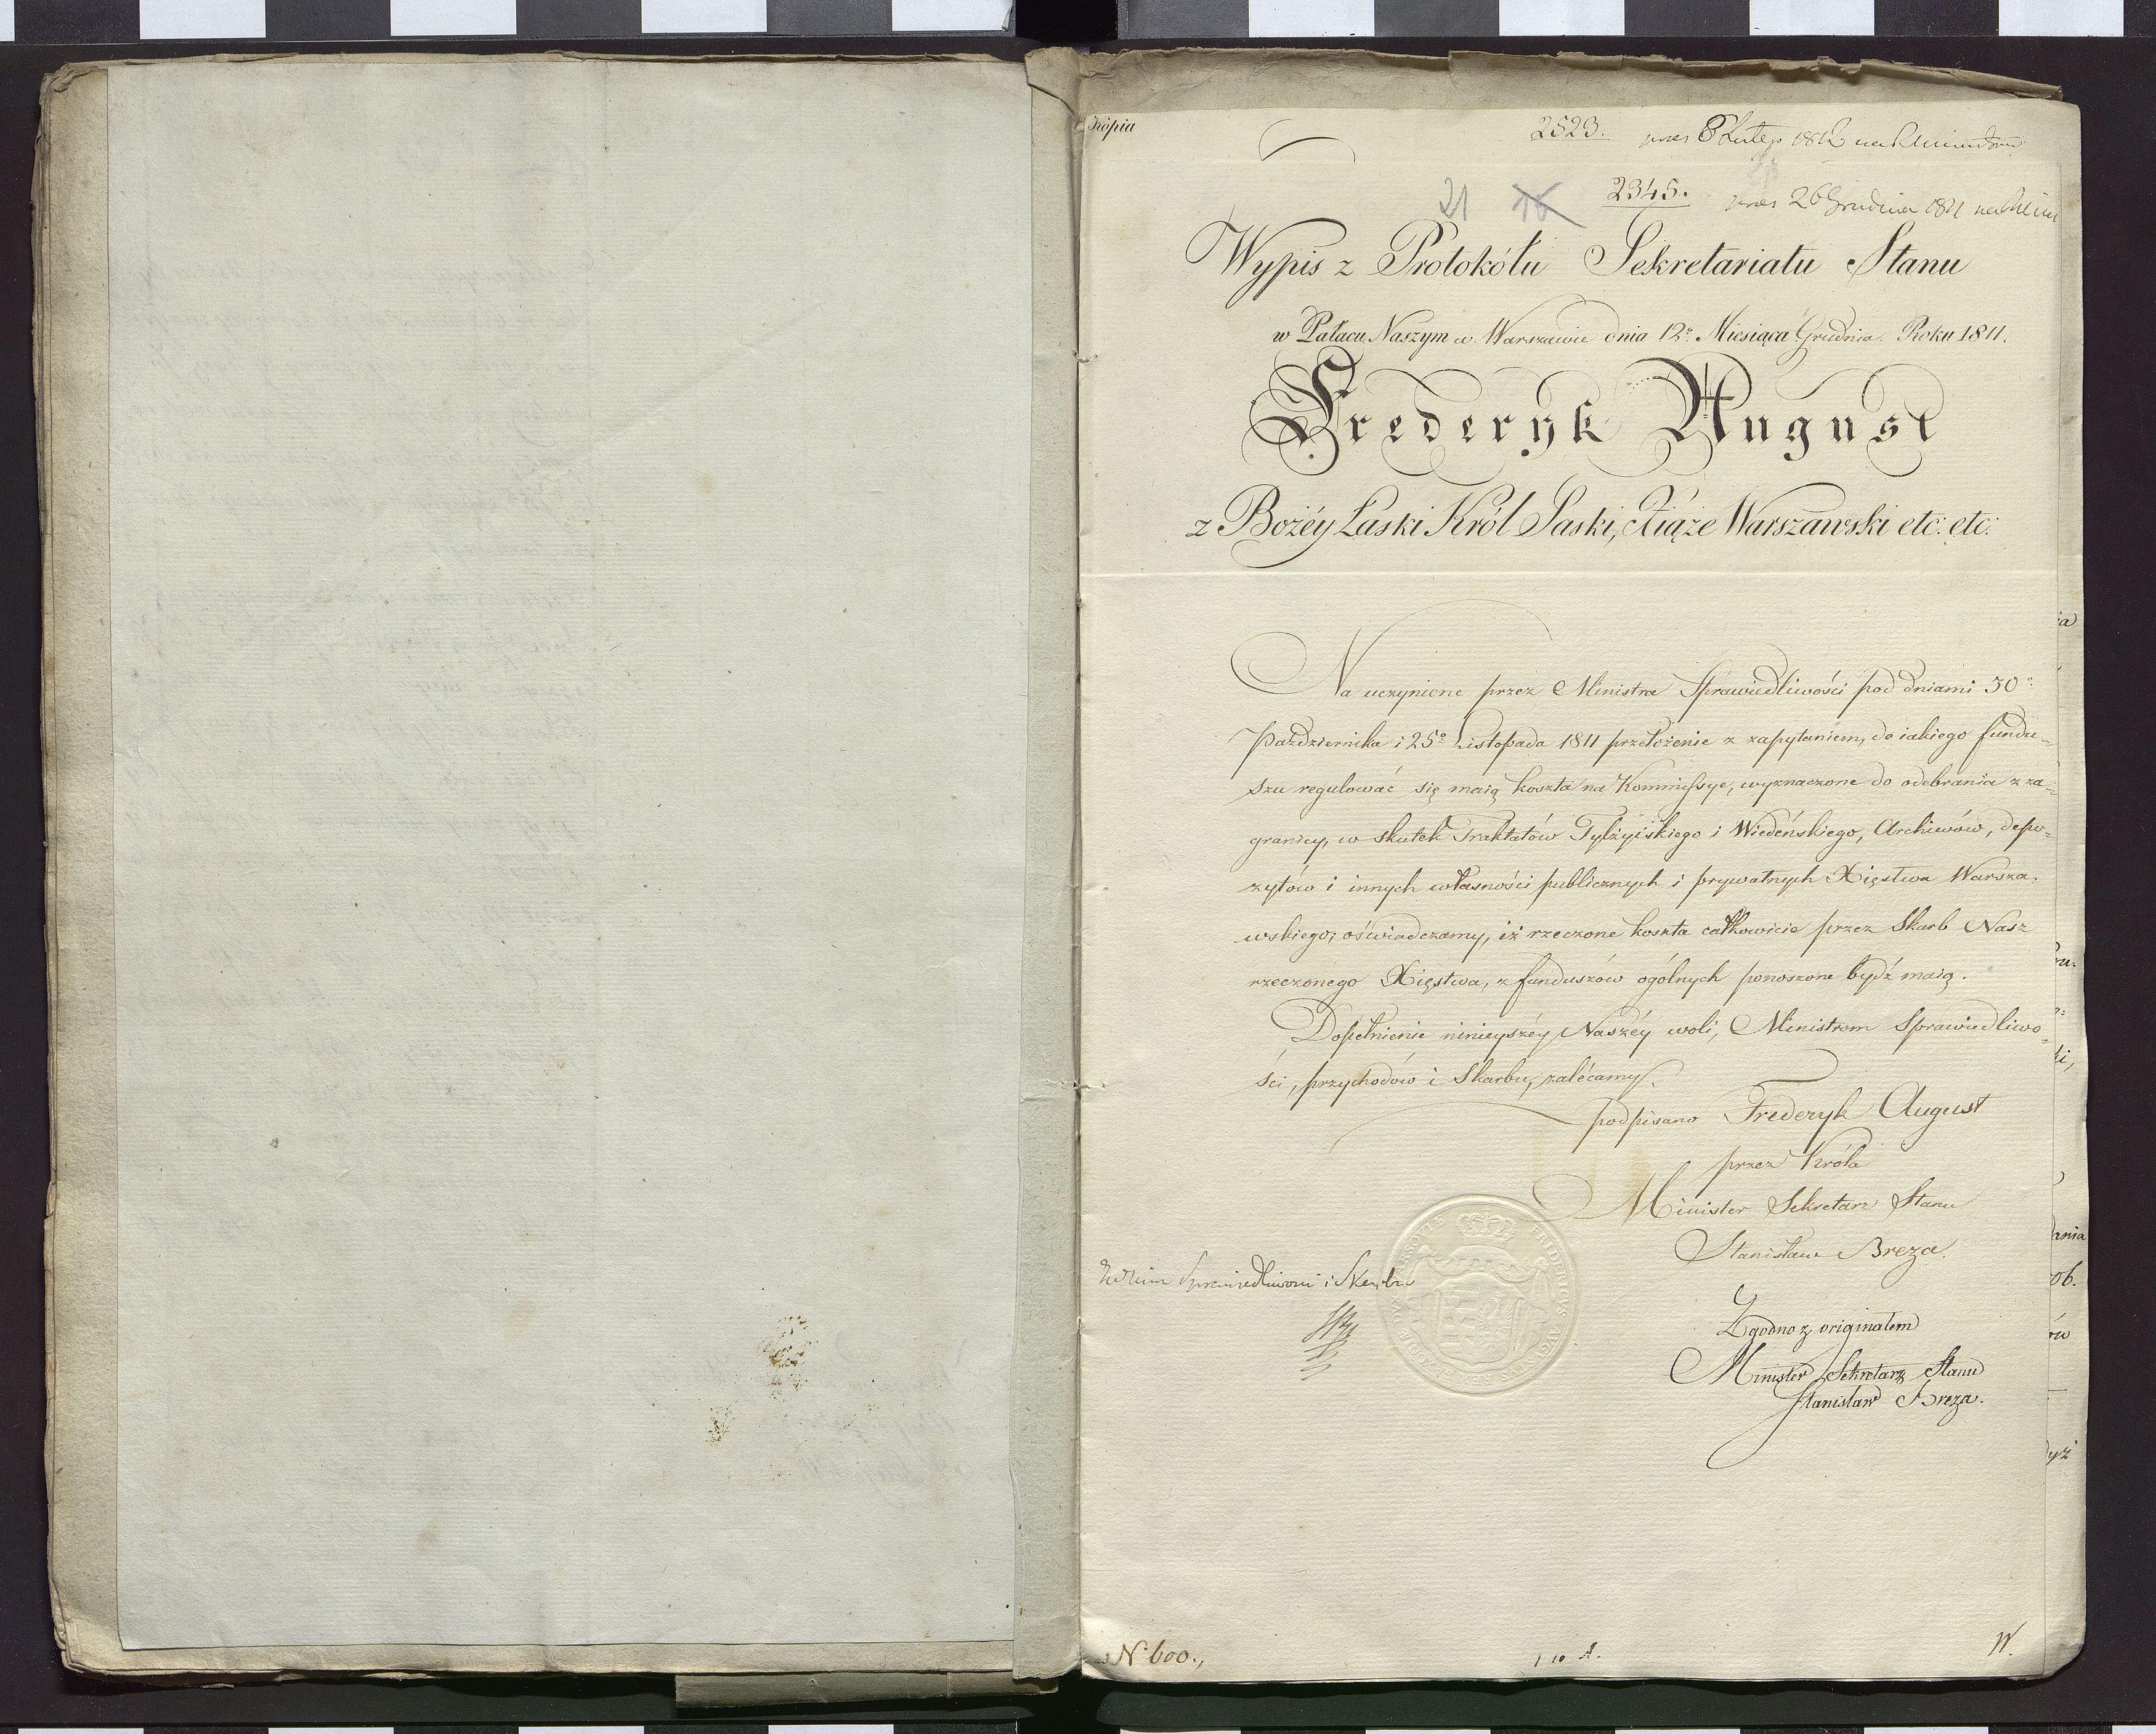 Kopia
2523. pres 8 Lutego 1812
21 16 2345. pres 26 Grudnia 1811
Wypis z Protokółu Sekretariatu Stanu
w Pałacu Naszym w Warszawie dnia 12º Miesiąca Grudnia Roku 1811.
Frederyk August
z Bożéy Łaski Król Saski, Xiąże Warszawski etc: etc:
Na uczynione przez Ministra Sprawiedliwości pod dniami 30º
Października i 25º Listopada 1811 przełożenie z zapytaniem, do iakiego fundu=
szu regulować się maią koszta na Kommissye, wyznaczone do odebrania z za=
granicy, w skutek Traktatów Tylżyiskiego i Wiedeńskiego, Archiwów, depo=
zytów i innych własności publicznych i prywatnych Xięstwa Warsza=
wskiego; oświadczamy, iż rzeczone koszta całkowicie przez Skarb Nasz
rzeczonego Xięstwa, z funduszów ogólnych ponoszone bydź maią.
Dopełnienie ninieyszéy Naszéy woli, Ministrom Sprawiedliwo=
ści, przychodów i Skarbu, zalécamy.
podpisano Frederyk August
przez Króla
Minister Sekretarz Stanu
Stanisław Breza.
Sprawiedliwości i Skarbu
Zgodno z originałem
Minister Sekretarz Stanu
Stanisław Breza.
N. 600.,
W.